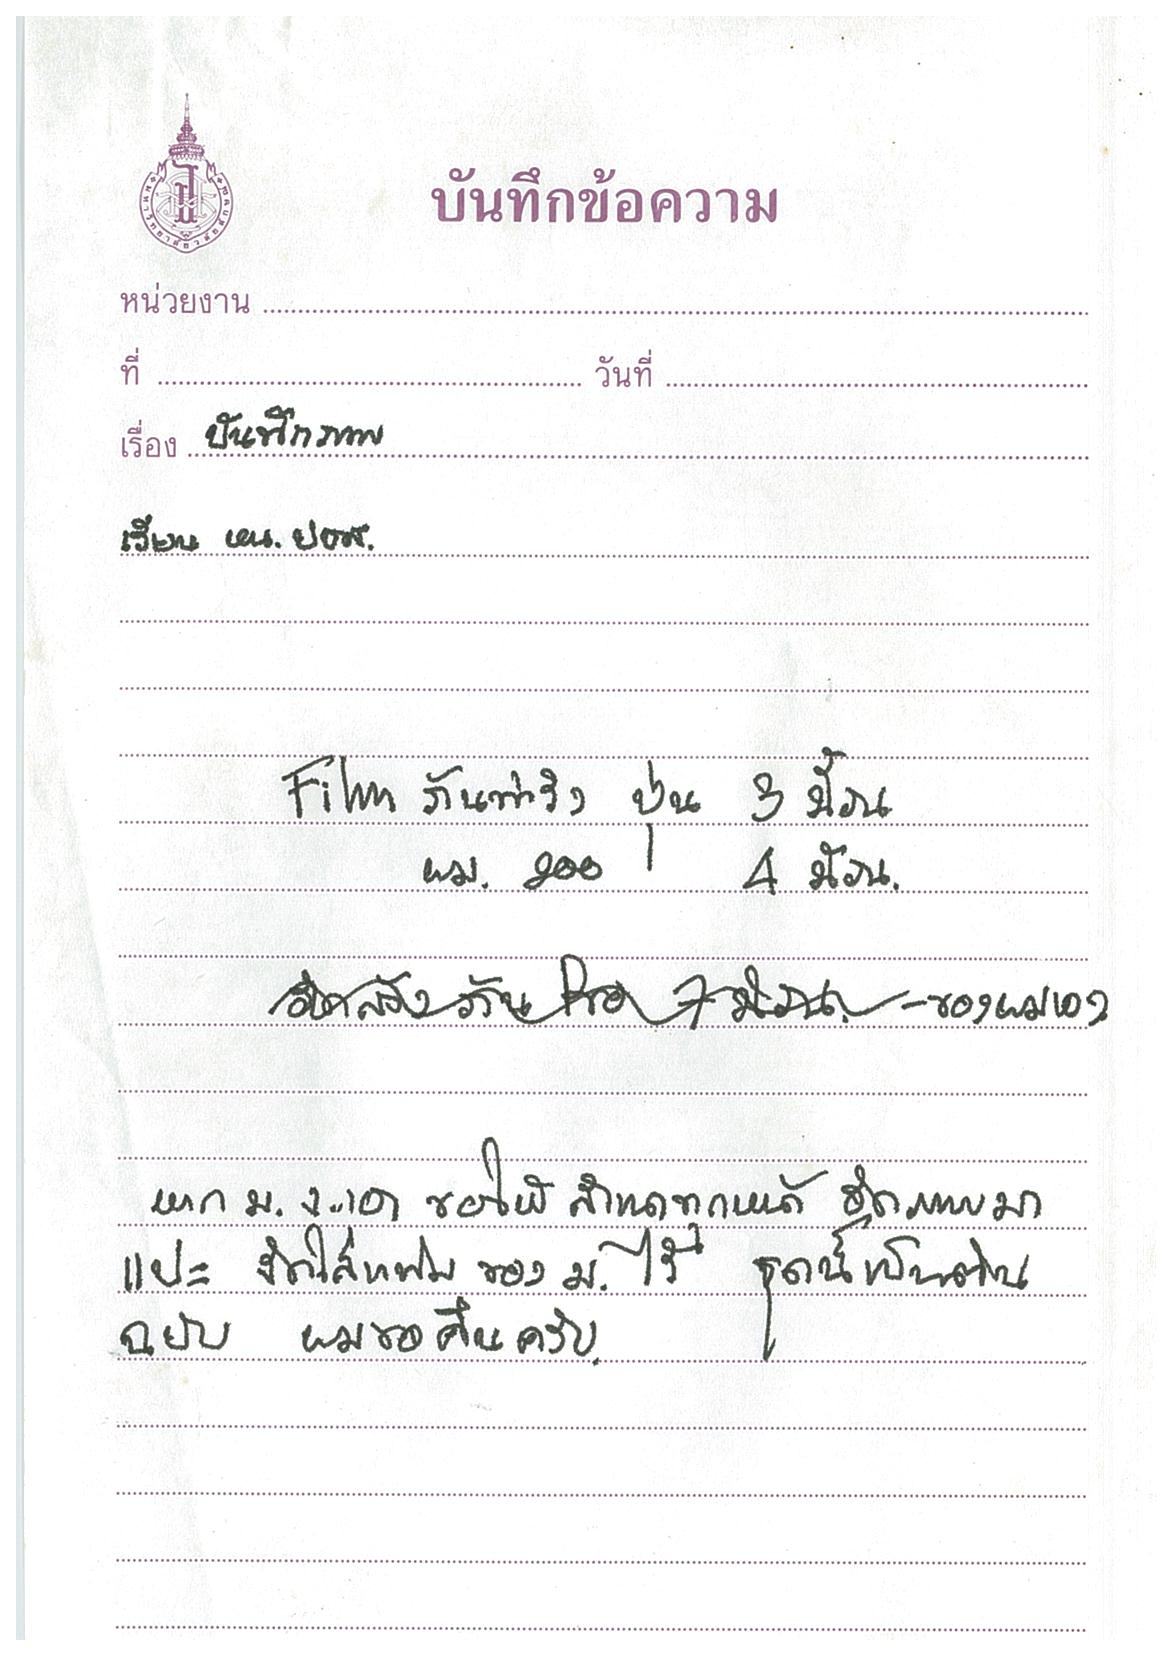 มหาวิทยาลัยวลัยลักษณ์
บันทึกข้อความ
หน่วยงาน
ที่ วันที่
เรื่อง บันทึกภาพ
เรียน หน. ปชส.
Film วันจริง ปุ่น 3 ม้วน
ผม. 200 4 ม้วน.
วัน Pro 7 ม้วน. - ของผมเอง
หาก ม. จะเอา ขอให้ อัดภาพมา
แปะ จัดใส่แฟ้ม ของ ม. ไว้ ชุดนี้เป็นต้น
ฉบับ ผมขอคืนครับ